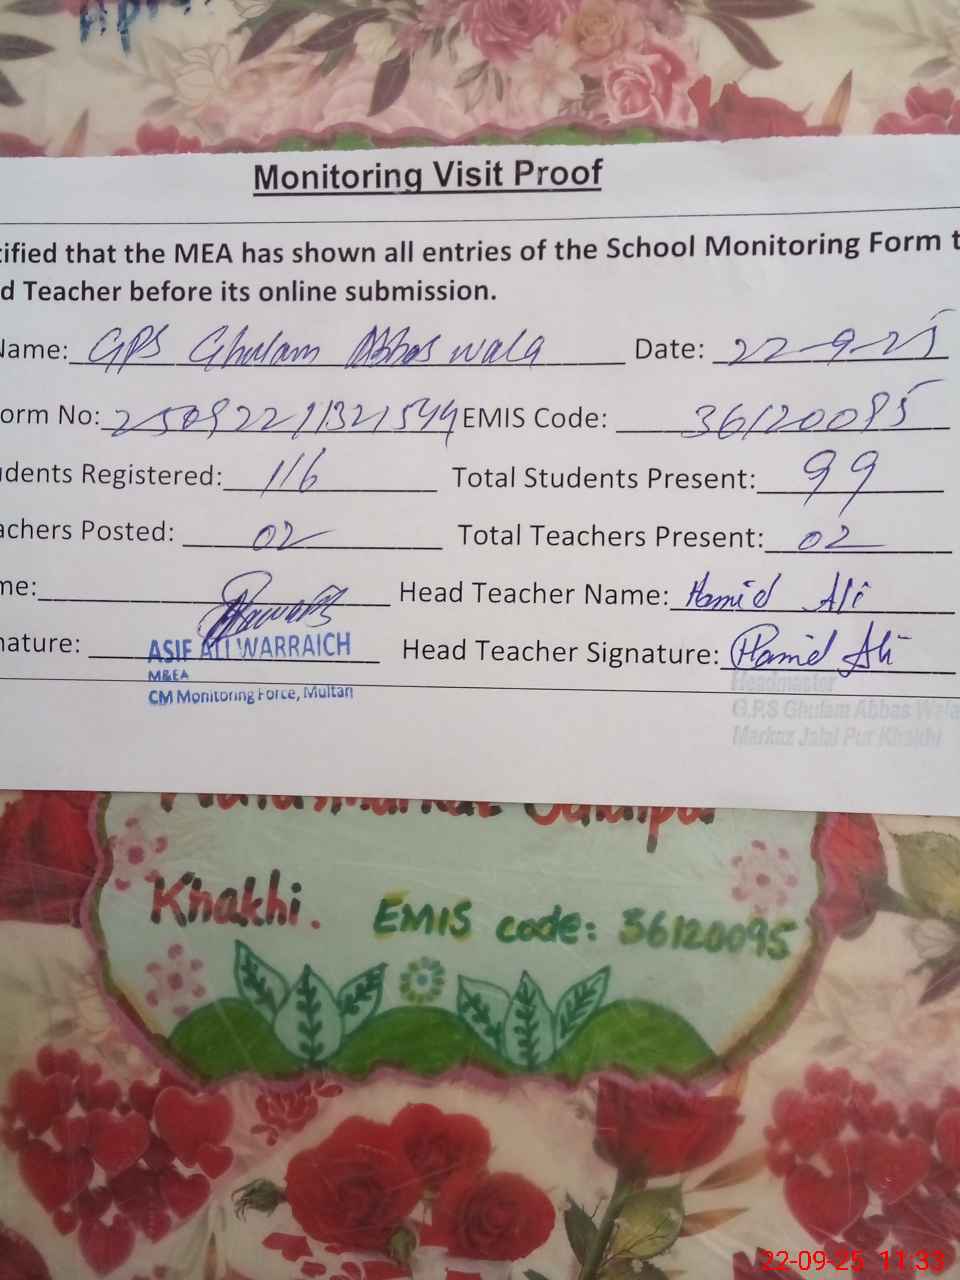 Monitoring Visit Proof
tified that the MEA has shown all entries of the School Monitoring Form t
d Teacher before its online submission.
Name: GPS Ghulam Abbas wala Date: 22-9-25
orm No: 25092211321544 EMIS Code: 36120095
dents Registered: 116 Total Students Present: 99
achers Posted: 02 Total Teachers Present: 02
me: Head Teacher Name: Hamid Ali
nature: Head Teacher Signature: Hamid Ali
ASIF ALI WARRAICH
M&EA
CM Monitoring Force, Multan
Headmaster
G.P.S Ghulam Abbas Wala
Markaz Jalal Pur Khakhi
Khakhi. EMIS code: 36120095
22-09-25 11:33